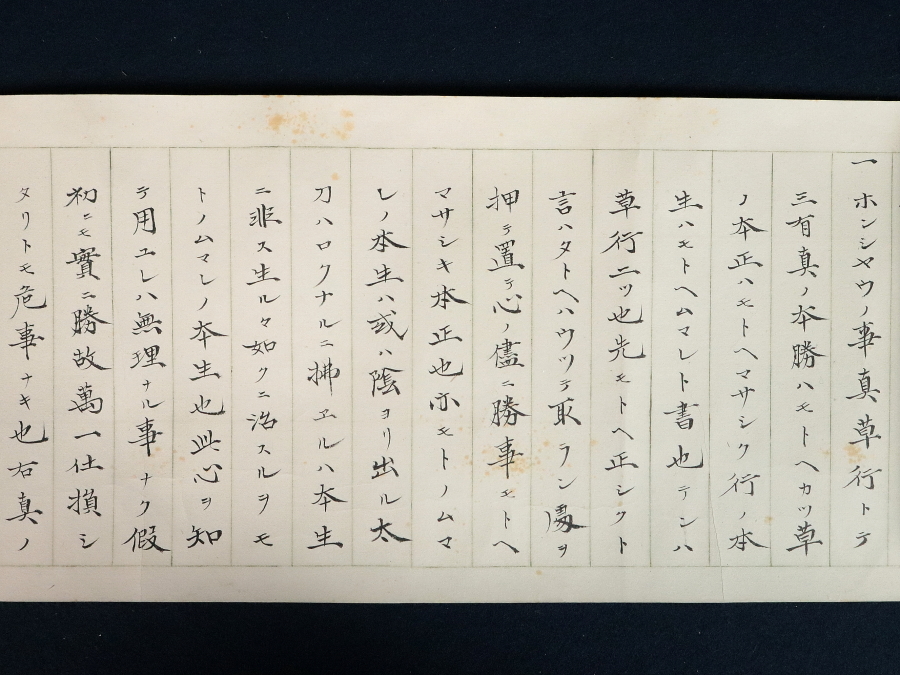 一 ホンシヤウノ事真草行トテ
三有真ノ本勝ハモトヘカツ草
ノ本正ハモトヘマサシク行ノ本
生ハモトヘムマレト書也テンハ
草行二ツ也先モトヘ正シクト
言ハタトヘハウツテ取ラン場ヲ
押テ置テ心ノ儘ニ勝事モトヘ
マサシキ本正也亦モトノムマ
レノ本生ハ或ハ陰ヨリ出ル太
刀ハロクナルニ拂ヱルハ本生
ニ非ス生ルヽ如クニ治スルヲモ
トノムマレノ本生也此心ヲ知
テ用ユレハ無理ナル事ナク假
初ニモ實ニ勝故萬一仕損シ
タリトモ危事ナキ也右真ノ